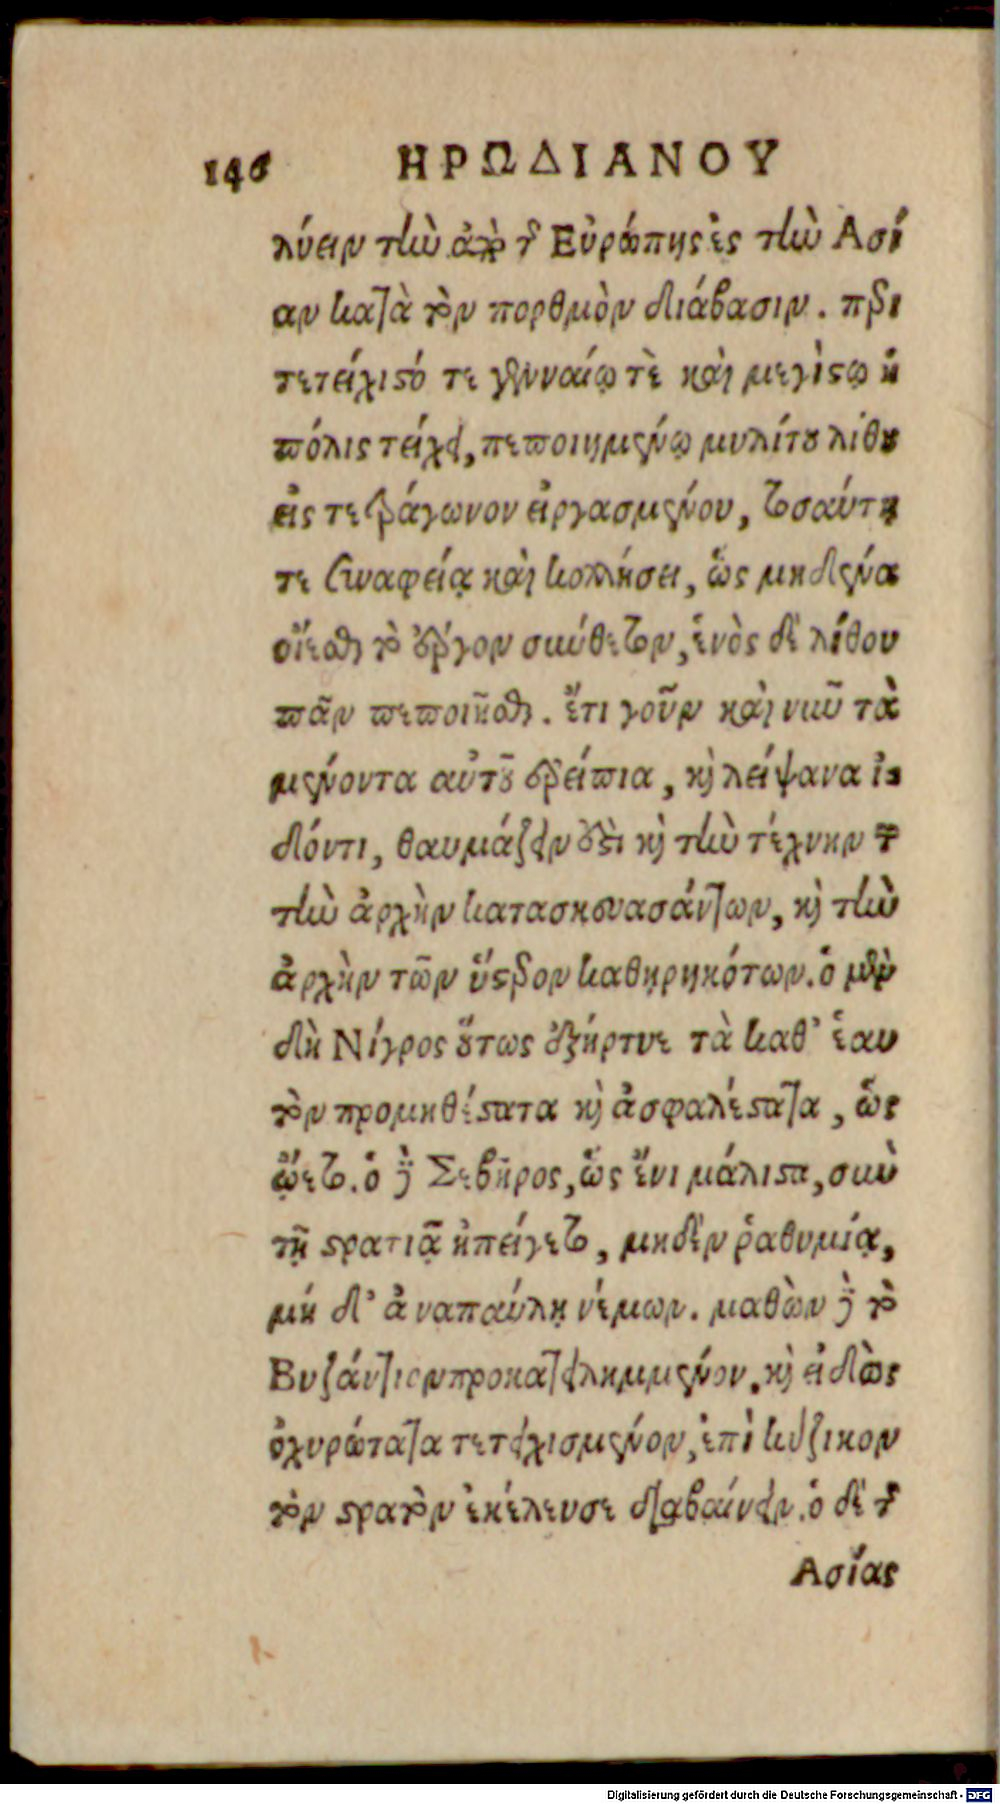 146 ΗΡΩΔΙΑΝΟΥ
λύειν τὴν ἀπὸ τῆς Εὐρώπης ἐς τὴν Ασί
αν κατὰ τὸν πορθμὸν διάβασιν. περι
τετείχιστό τε γενναίῳ τὲ καὶ μεγίστῳ ἡ
πόλις τείχει, πεποιημένῳ μυλίτου λίθου
εἰς τετράγωνον εἰργασμένου, τοσαύτῃ
τε συναφείᾳ καὶ κολλήσει, ὥς μηδένα
οἴεσθαι τὸ ἔργον σκύθετον, ἑνὸς δὲ λίθου
πᾶν πεποιῆσθαι. ἔτι γοῦν καὶ νῦν τὰ
μένοντα αὐτοῦ ἐρείπια, καὶ λείψανα ἰ
δόντι, θαυμάζειν ἔστι καὶ τὴν τέχνην τῶν
τὴν ἀρχὴν κατασκευασάντων, καὶ τὴν
ἀρχὴν τῶν ὕστερον καθῃρηκότων. ὁ μὲν
δὴ Νίγρος οὕτως ἐξήρτυε τὰ καθ’ ἑαυ
τὸν προμηθέστατα καὶ ἀσφαλέστατα, ὥς
ᾤετο. ὁ δὲ Σεβῆρος, ὥς ἔνι μάλιστα, σὺν
τῇ στρατιᾷ ἠπείγετο, μηδὲν ῥαθυμίᾳ,
μή δ’ ἀναπαύλῃ νέμων. μαθὼν δὲ τὸ
Βυζάντιον προκατειλημμένον, καὶ εἰδὼς
ὀχυρώτατα τετειχισμένον, ἐπὶ κύζικον
τὸν στρατὸν ἐκέλευσε διαβαίνειν. ὁ δὲ τῆς
Ασίας
Digitalisierung gefördert durch die Deutsche Forschungsgemeinschaft - DFG